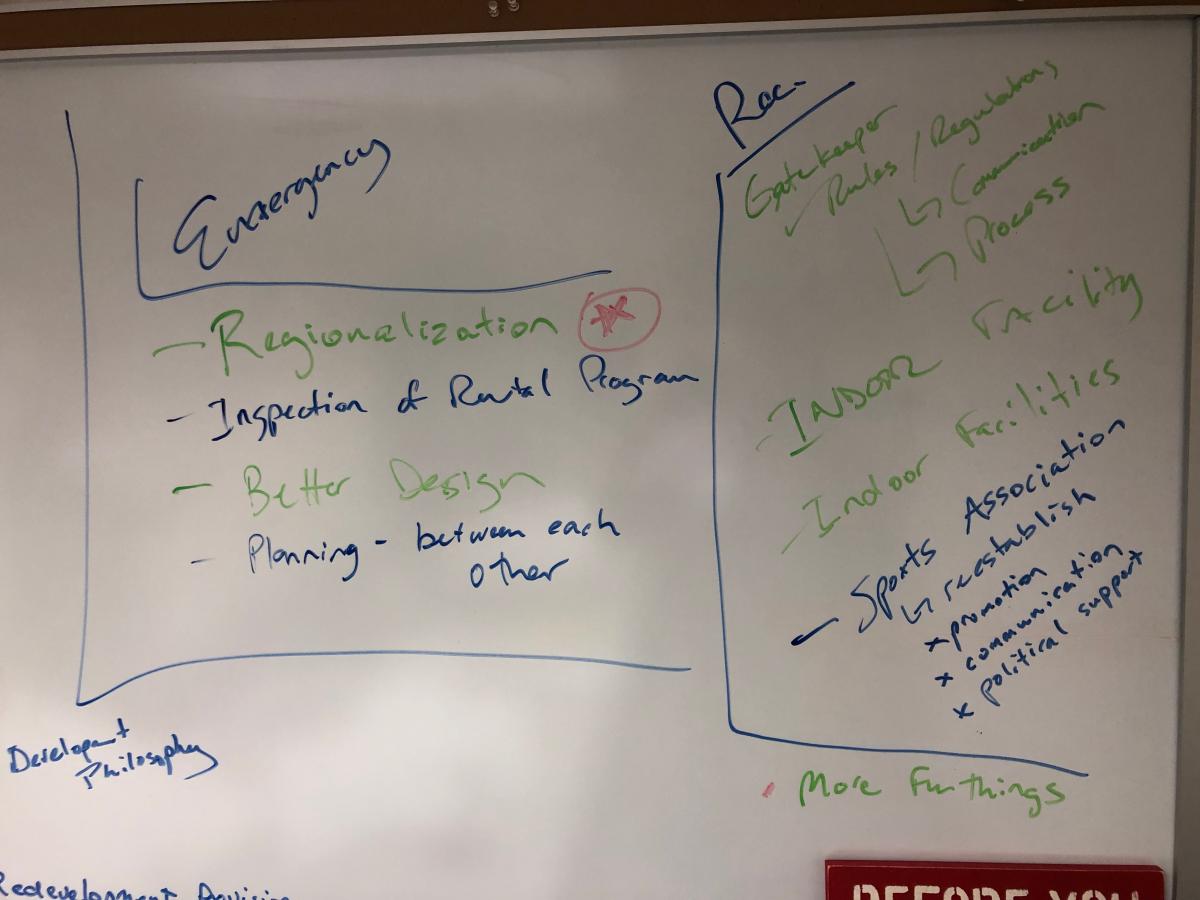 Emergency
- Regionalization
- Inspection of Rental Program
- Better Design
- Planning - between each
other
Rec.
Gatekeeper
✓ Rules / Regulations
↳ Communication
↳ Process
- INDOOR FACILITY
- Indoor Facilities
- Sports Association
↳ reestablish
x promotion
x communication
x political support
More Fun things
Philosophy
Redevelopment
BEFORE YOU